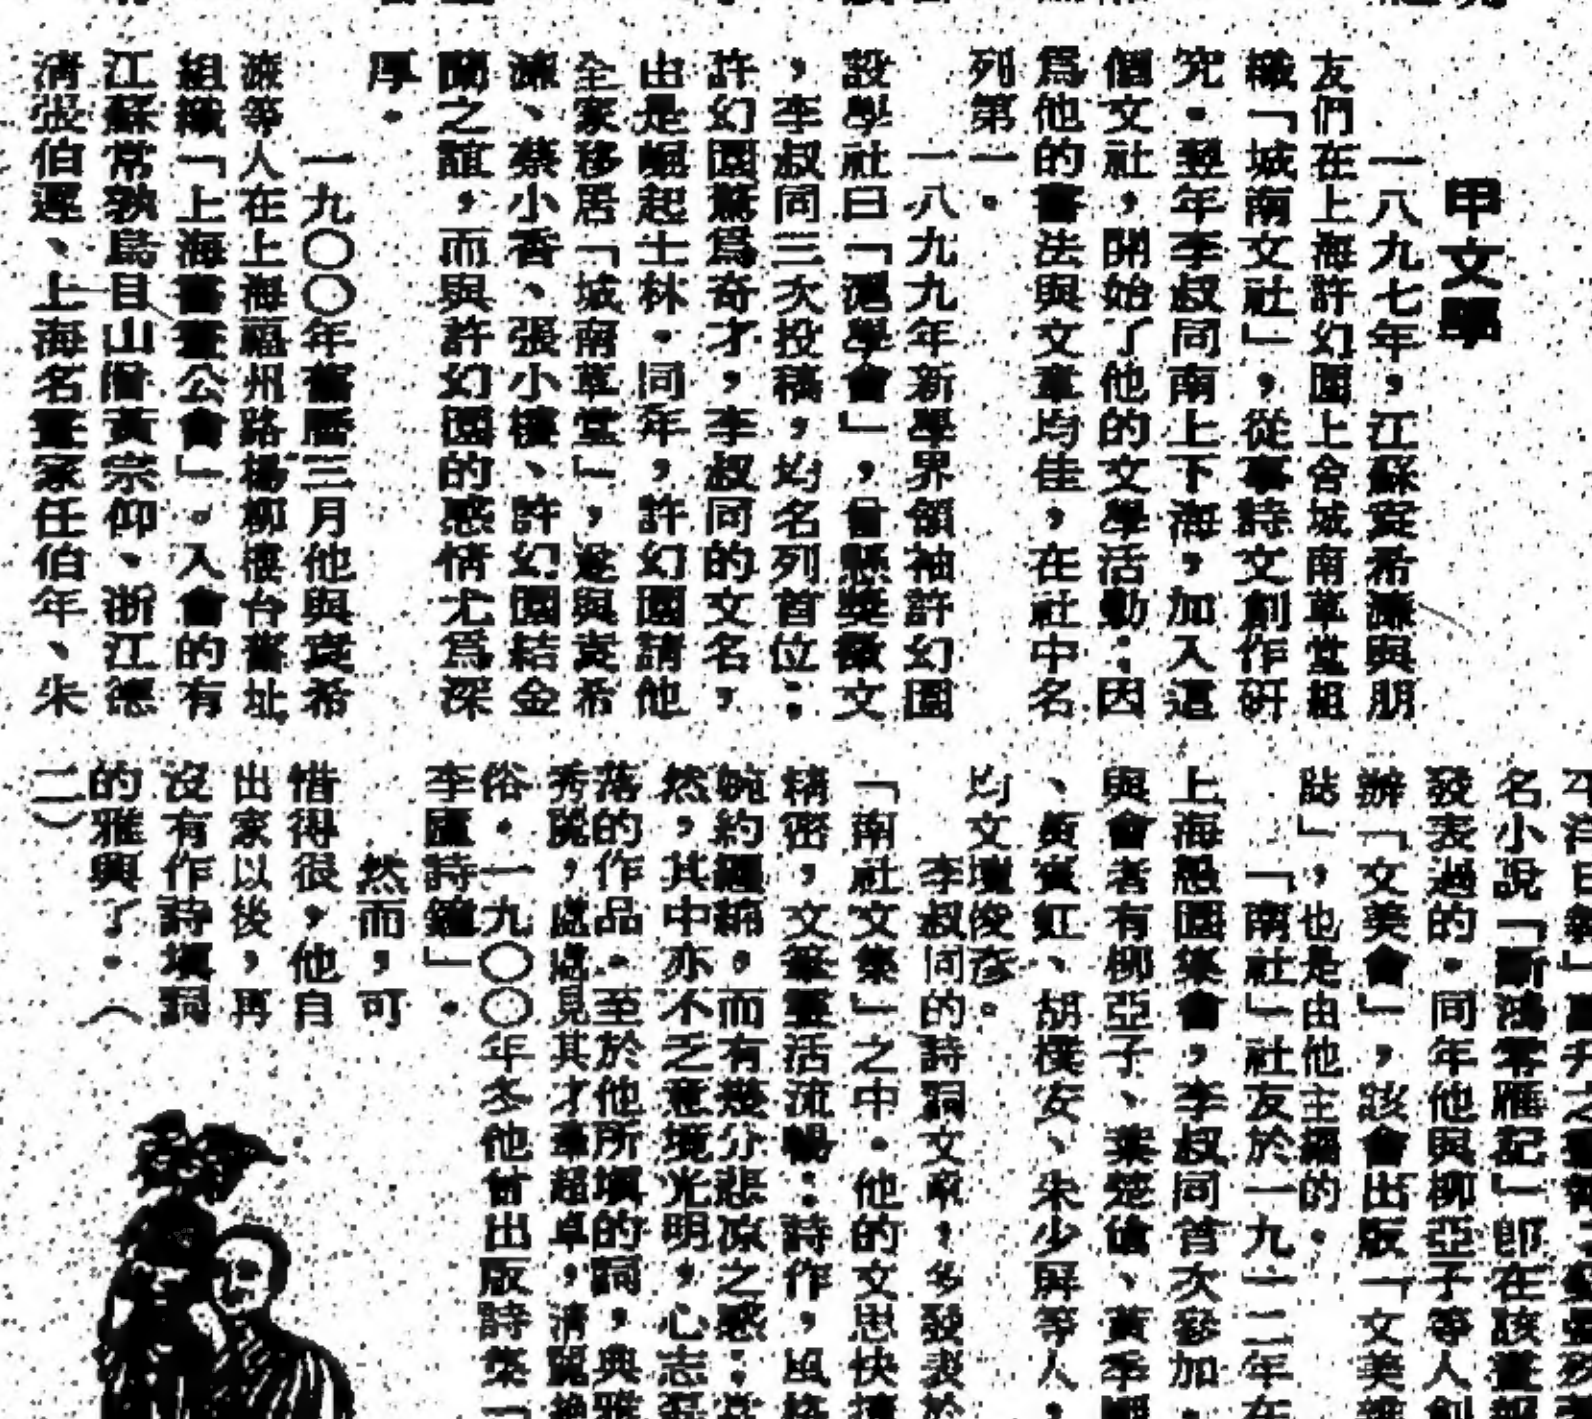 甲文學
一八九七年，江蘇袁希濂與朋
友們在上海許幻園上舍城南草堂組
織「城南文社」，從事詩文創作研
究。翌年李叔同南上下海，加入這
個文社，開始了他的文學活動；因
爲他的書法與文章均佳，在社中名
列第一。
一八九九年新學界領袖許幻園
設學社曰「滬學會」，曾懸獎徵文
，李叔同三次投稿，均名列首位；
許幻園驚爲奇才，李叔同的文名，
由是崛起士林。同年，許幻園請他
全家移居「城南草堂」，遂與袁希
濂、蔡小香、張小樓、許幻園結金
蘭之誼，而與許幻園的感情尤爲深
厚。
一九〇〇年舊曆三月他與袁希
濂等人在上海福州路楊柳樓台舊址
組織「上海書畫公會」。入會的有
江蘇常熟烏目山僧黃宗仰、浙江德
清張伯遲、上海名畫家任伯年、朱
名小說「斷鴻零雁記」卽在該畫報
發表過的。同年他與柳亞子等人創
辦「文美會」，該會出版「文美雜
誌」，也是由他主編的。
「南社」社友於一九一二年在
上海愚園集會，李叔同首次參加。
與會者有柳亞子、葉楚傖、黃季
、黃賓虹、胡樸安、朱少屏等人，
均文壇俊彥。
李叔同的詩詞文章，多發表於
「南社文集」之中。他的文思快
精密，文筆靈活流暢；詩作，風格
婉約纏綿，而有幾分悲凉之感；
然，其中亦不乏意境光明，心志
落的作品。至於他所塡的詞，典雅
秀麗，處處見其才華超卓，清麗
俗。一九〇〇年冬他曾出版詩集「
李廬詩鐘」。
然而，可
惜得很，他自
出家以後，再
沒有作詩塡詞
的雅興了。（
二）